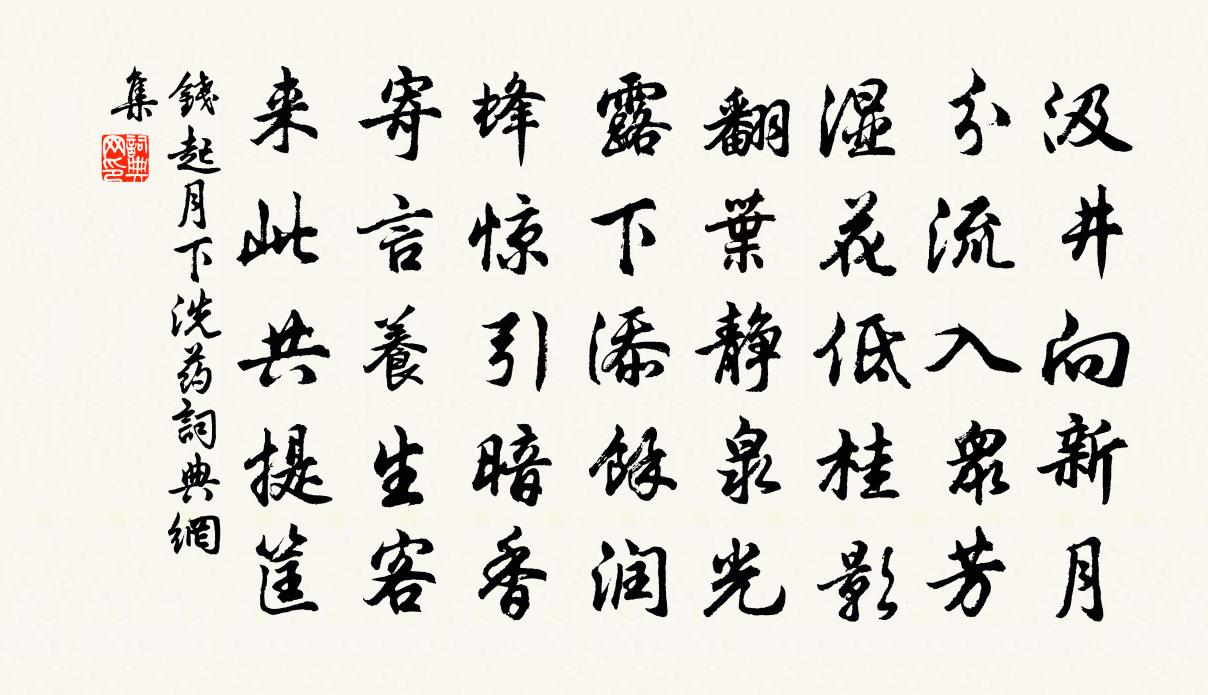 汲井向新月
分流入衆芳
湿花低桂影
翻葉静泉光
露下添餘润
蜂惊引暗香
寄言養生客
来此共提筐
錢起月下洗药詞典網
集
詞典網印